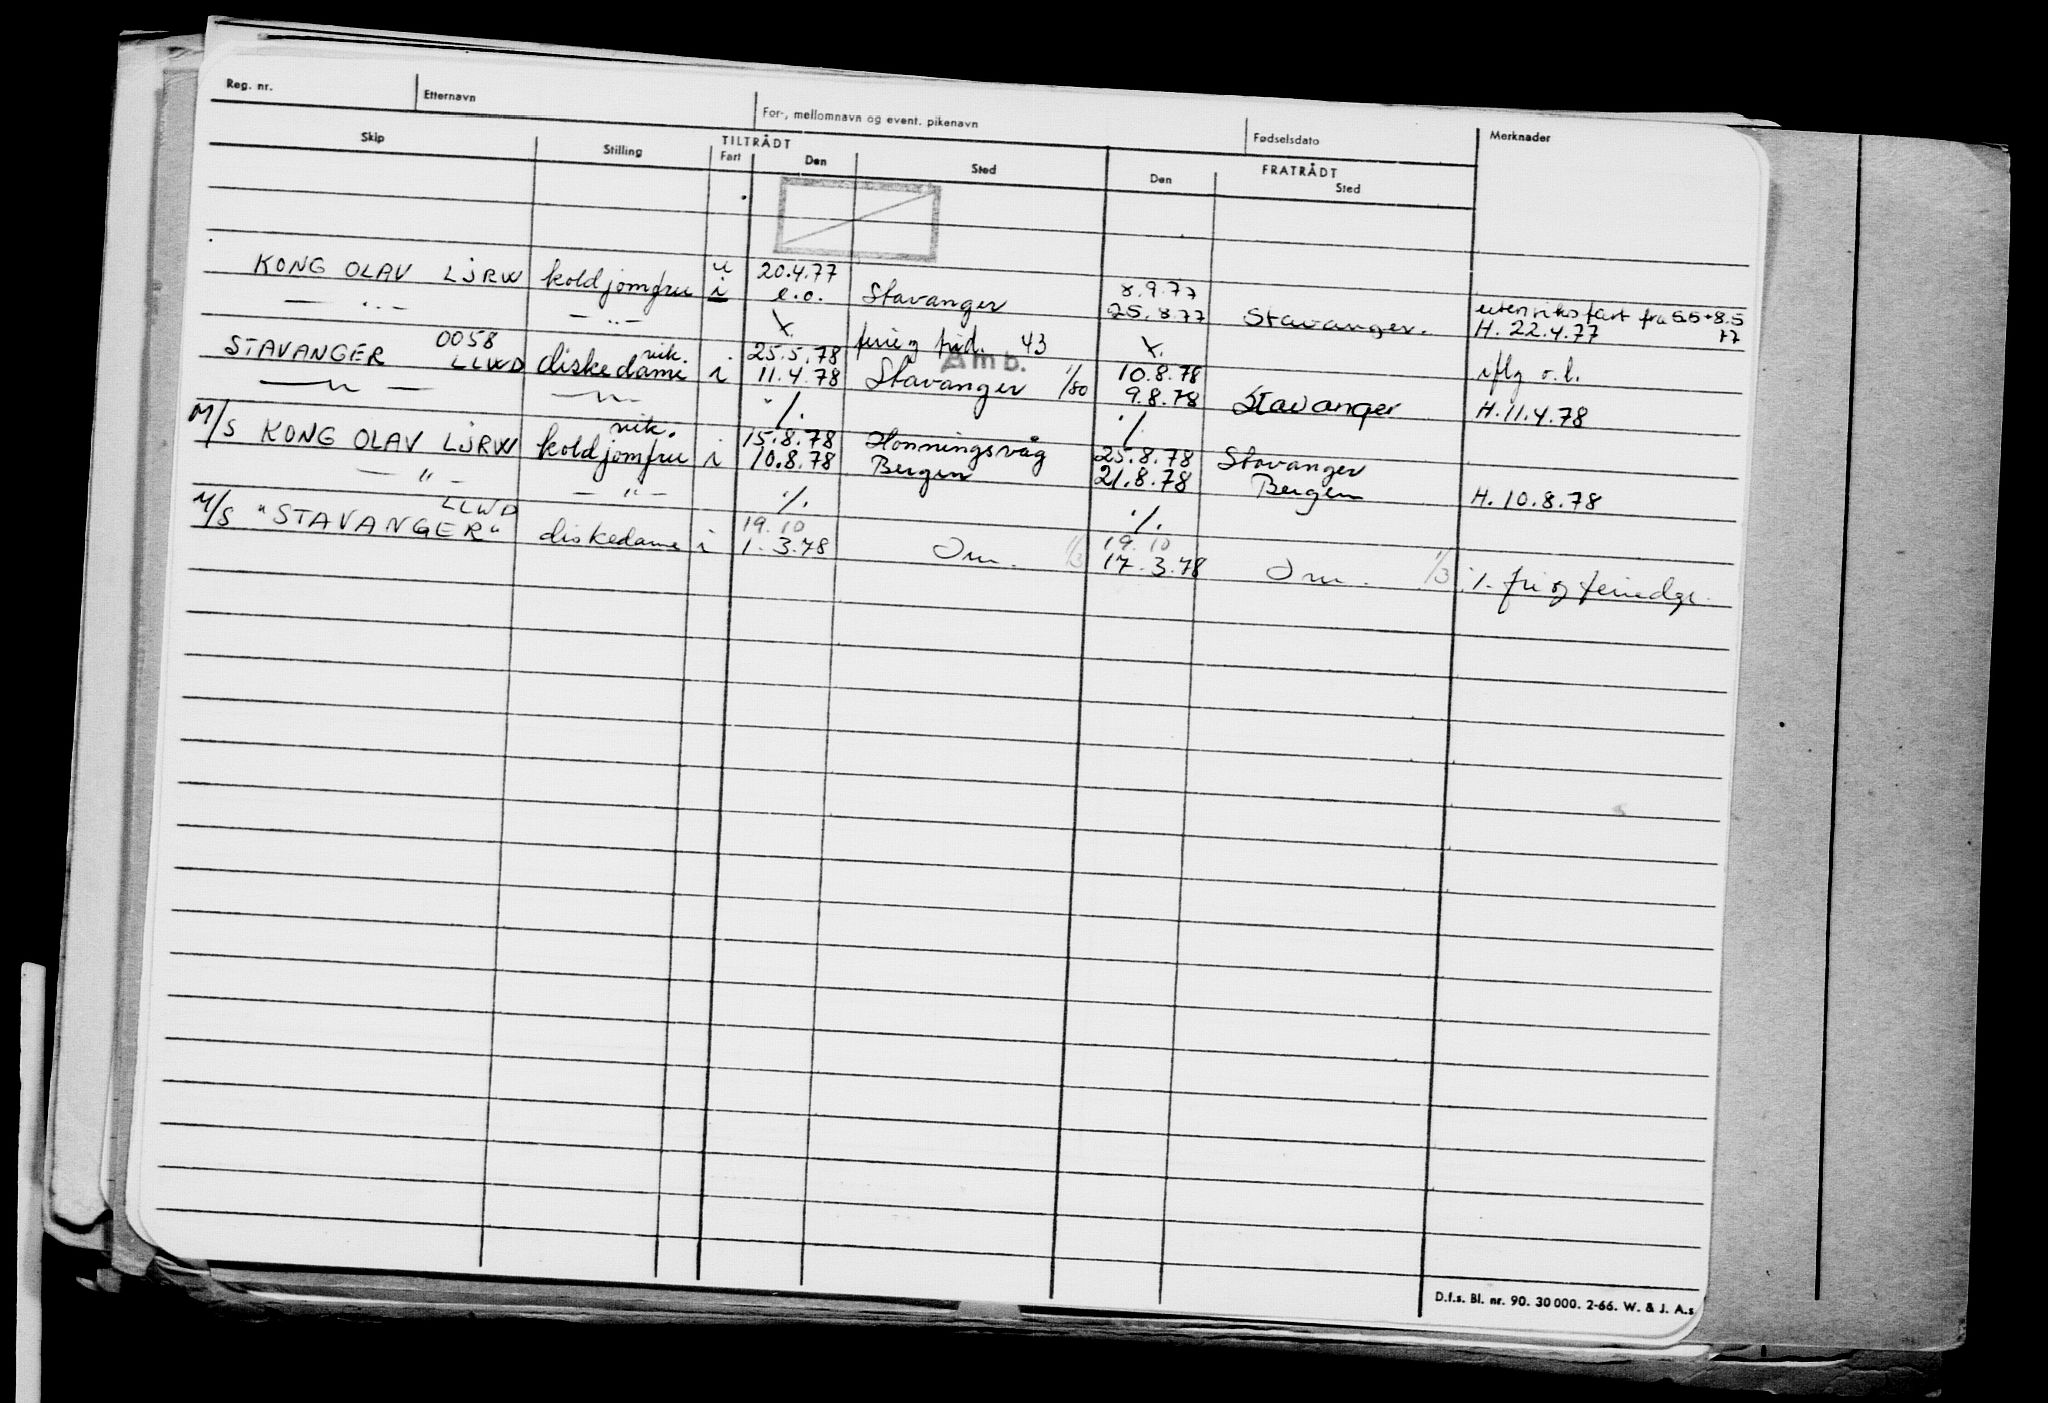 Reg. nr. Etternavn For-, mellomnavn og event. pikenavn Fødselsdato Merknader
Skip Stilling TILTRÅDT FRATRÅDT
Fart Den Sted Den Sted
KONG OLAV LJRW koldjomfru u 20.4.77 8.9.77 utenriksfart fra 5.5 + 8.5 77
— " — — " — i e.o. Stavanger 25.8.77 Stavanger. H. 22.4.77
0058 vik. 43
STAVANGER LLWD diskedame i 25.5.78 Amb. 10.8.78 iflg o.l.
— " — — " — 11.4.78 Stavanger 1/80 9.8.78 Stavanger H. 11.4.78
·/. ·/.
vik.
M/S KONG OLAV LJRW koldjomfru i 15.8.78 Honningsvåg 25.8.78 Stavanger
— " — — " — 10.8.78 Bergen 21.8.78 Bergen H. 10.8.78
LLWD ·/. ·/.
M/S "STAVANGER" diskedame i 19.10 19.10
1.3.78 1/3 17.3.78 1/3 fri og feriedgr.
D.f.s. Bl. nr. 90. 30 000. 2-66. W. & J. A.s